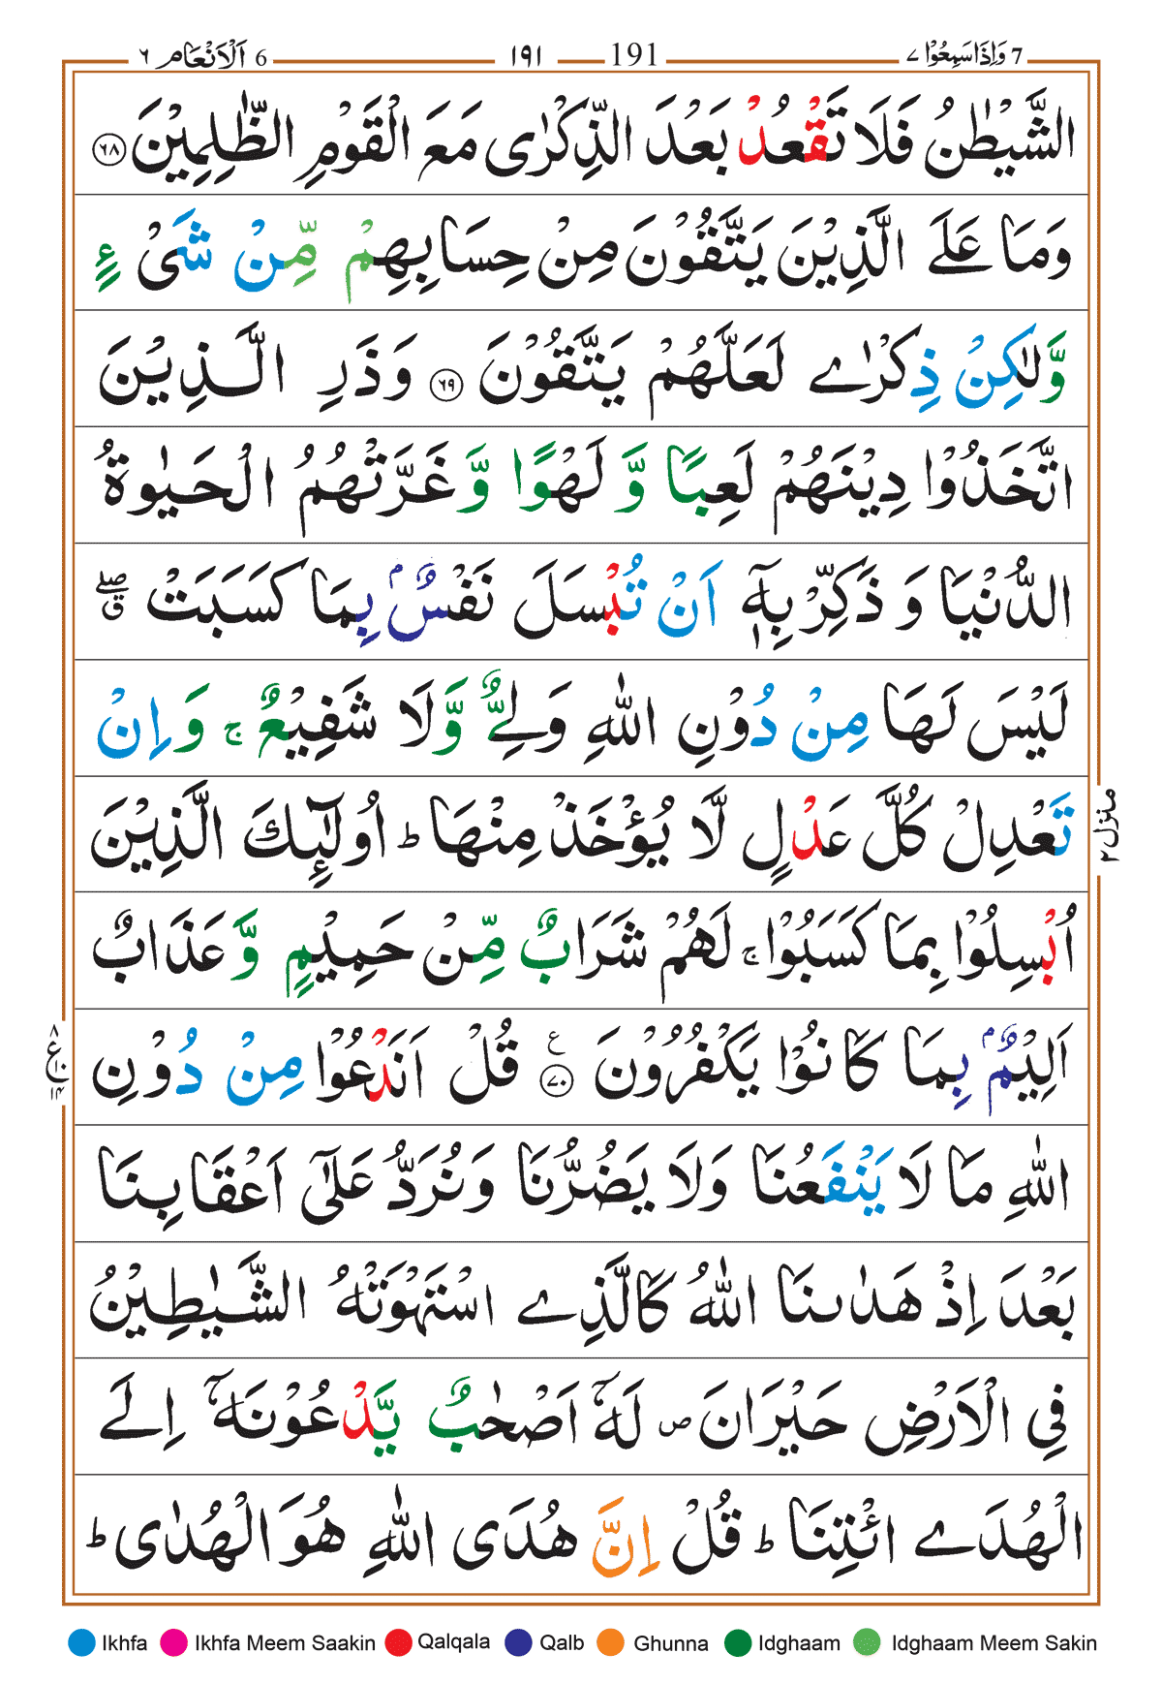 7 وَاِذَاسَمِعُوْا ٧ 191 ١٩١ 6 اَلْاَنْعَام ٦
الشَّيْطٰنُ فَلَا تَقْعُدْ بَعْدَ الذِّكْرٰى مَعَ الْقَوْمِ الظّٰلِمِيْنَ ٦٨
وَمَا عَلَے الَّذِيْنَ يَتَّقُوْنَ مِنْ حِسَابِهِمْ مِّنْ شَیْءٍ
وَّلٰكِنْ ذِكْرٰے لَعَلَّهُمْ يَتَّقُوْنَ ٦٩ وَذَرِ الَّذِيْنَ
اتَّخَذُوْا دِيْنَهُمْ لَعِبًا وَّ لَهْوًا وَّغَرَّتْهُمُ الْحَيٰوةُ
الدُّنْيَا وَ ذَكِّرْ بِهٖٓ اَنْ تُبْسَلَ نَفْسٌۢ بِمَا كَسَبَتْ ۖق
لَيْسَ لَهَا مِنْ دُوْنِ اللّٰهِ وَلِےٌّ وَّلَا شَفِيْعٌ ۚ وَاِنْ
تَعْدِلْ كُلَّ عَدْلٍ لَّا يُؤْخَذْ مِنْهَا ؕ اُولٰٓئِكَ الَّذِيْنَ
منزل ٢
اُبْسِلُوْا بِمَا كَسَبُوْا ۚ لَهُمْ شَرَابٌ مِّنْ حَمِيْمٍ وَّعَذَابٌ
اَلِيْمٌۢ بِمَا كَانُوْا يَكْفُرُوْنَ ٧٠ ع قُلْ اَنَدْعُوْا مِنْ دُوْنِ
٨ ع ١٠ ١٤
اللّٰهِ مَا لَا يَنْفَعُنَا وَلَا يَضُرُّنَا وَنُرَدُّ عَلٰٓى اَعْقَابِنَا
بَعْدَ اِذْ هَدٰىنَا اللّٰهُ كَالَّذِے اسْتَهْوَتْهُ الشَّيٰطِيْنُ
فِي الْاَرْضِ حَيْرَانَ ص لَهٗٓ اَصْحٰبٌ يَّدْعُوْنَهٗٓ اِلَے
الْهُدَے ائْتِنَا ؕ قُلْ اِنَّ هُدَى اللّٰهِ هُوَ الْهُدٰى ؕ
Ikhfa Ikhfa Meem Saakin Qalqala Qalb Ghunna Idghaam Idghaam Meem Sakin